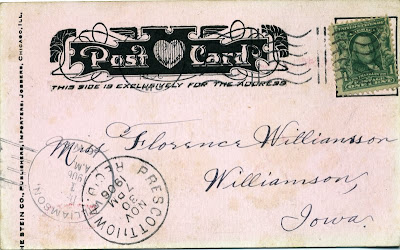 Post Card
THIS SIDE IS EXCLUSIVELY FOR THE ADDRESS
Miss Florence Williamson
Williamson,
Iowa.
PRESCOTT, IOWA
NOV
3
7 PM
1906
THE STEIN CO., PUBLISHERS, IMPORTERS, JOBBERS, CHICAGO, ILL.